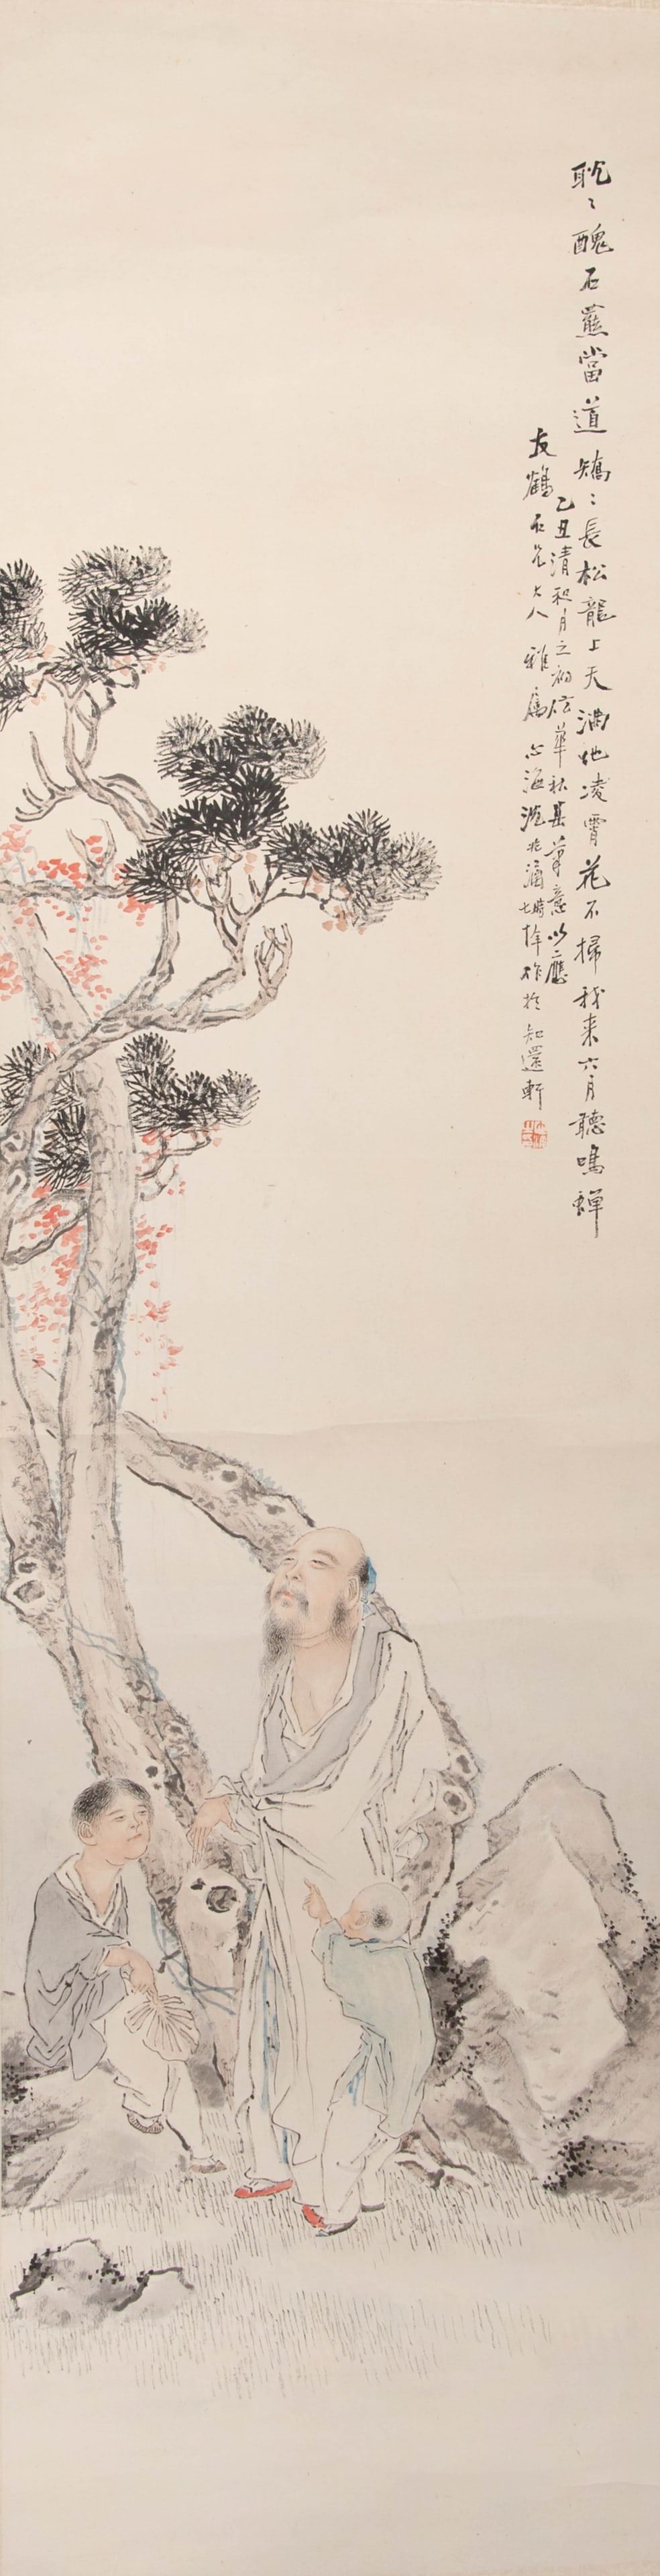 眈々醜石蹲當道矯々長松龍上天滿地凌霄花不掃我来六月聽鳴蟬
乙丑清和月之初仿華秋岳筆意以應
友鶴石兄大人雅屬心海 兆涵 時倅作於知還軒